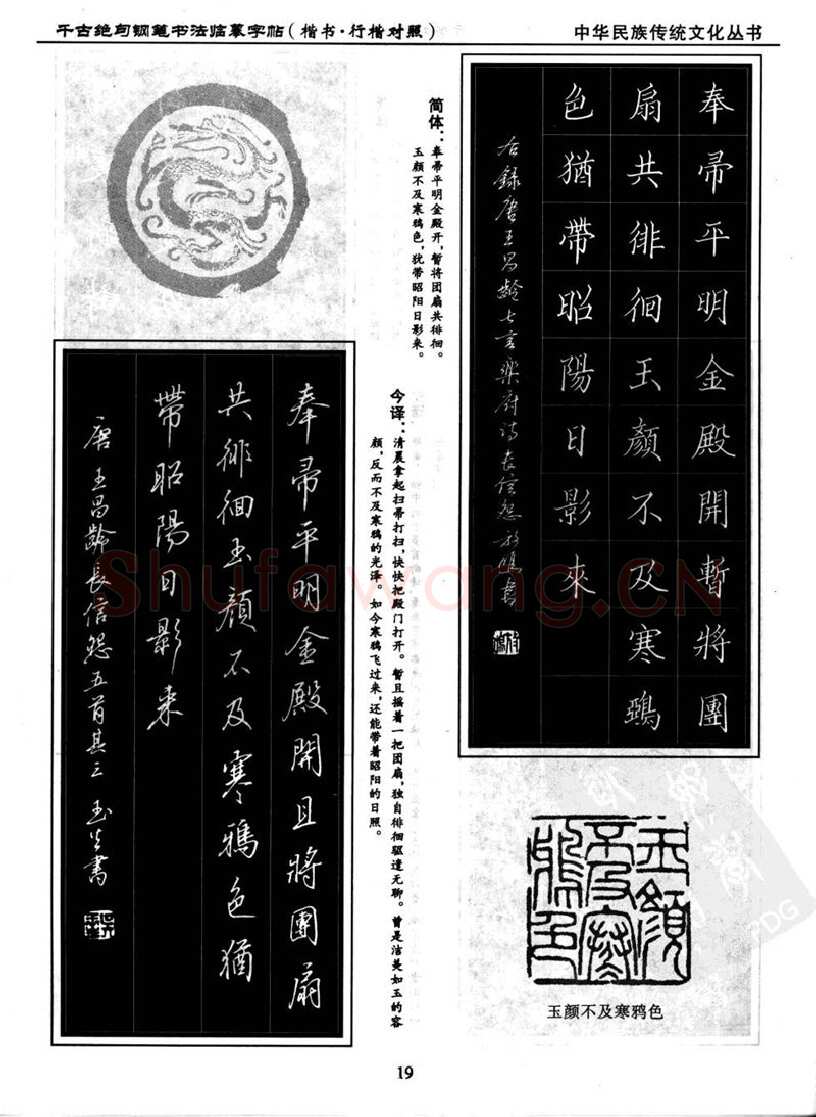 千古绝句钢笔书法临摹字帖(楷书·行楷对照)
中华民族传统文化丛书
奉帚平明金殿開暫將團
扇共徘徊玉顏不及寒鵶
色猶帶昭陽日影來
右錄唐王昌齡七言樂府詩長信怨
简体：奉帚平明金殿开，暂将团扇共徘徊。
玉颜不及寒鸦色，犹带昭阳日影来。
今译：清晨拿起扫帚打扫，快快把殿门打开。暂且摇着一把团扇，独自徘徊驱遣无聊。曾是洁美如玉的容
颜，反而不及寒鸦的光泽。如今寒鸦飞过来，还能带着昭阳的日照。
奉帚平明金殿開且將團扇
共徘徊玉顏不及寒鴉色猶
帶昭陽日影来
唐王昌齡長信怨五首其三 玉生書
玉顏
不及寒
鴉色
玉颜不及寒鸦色
19
Shufawang.CN
PDG